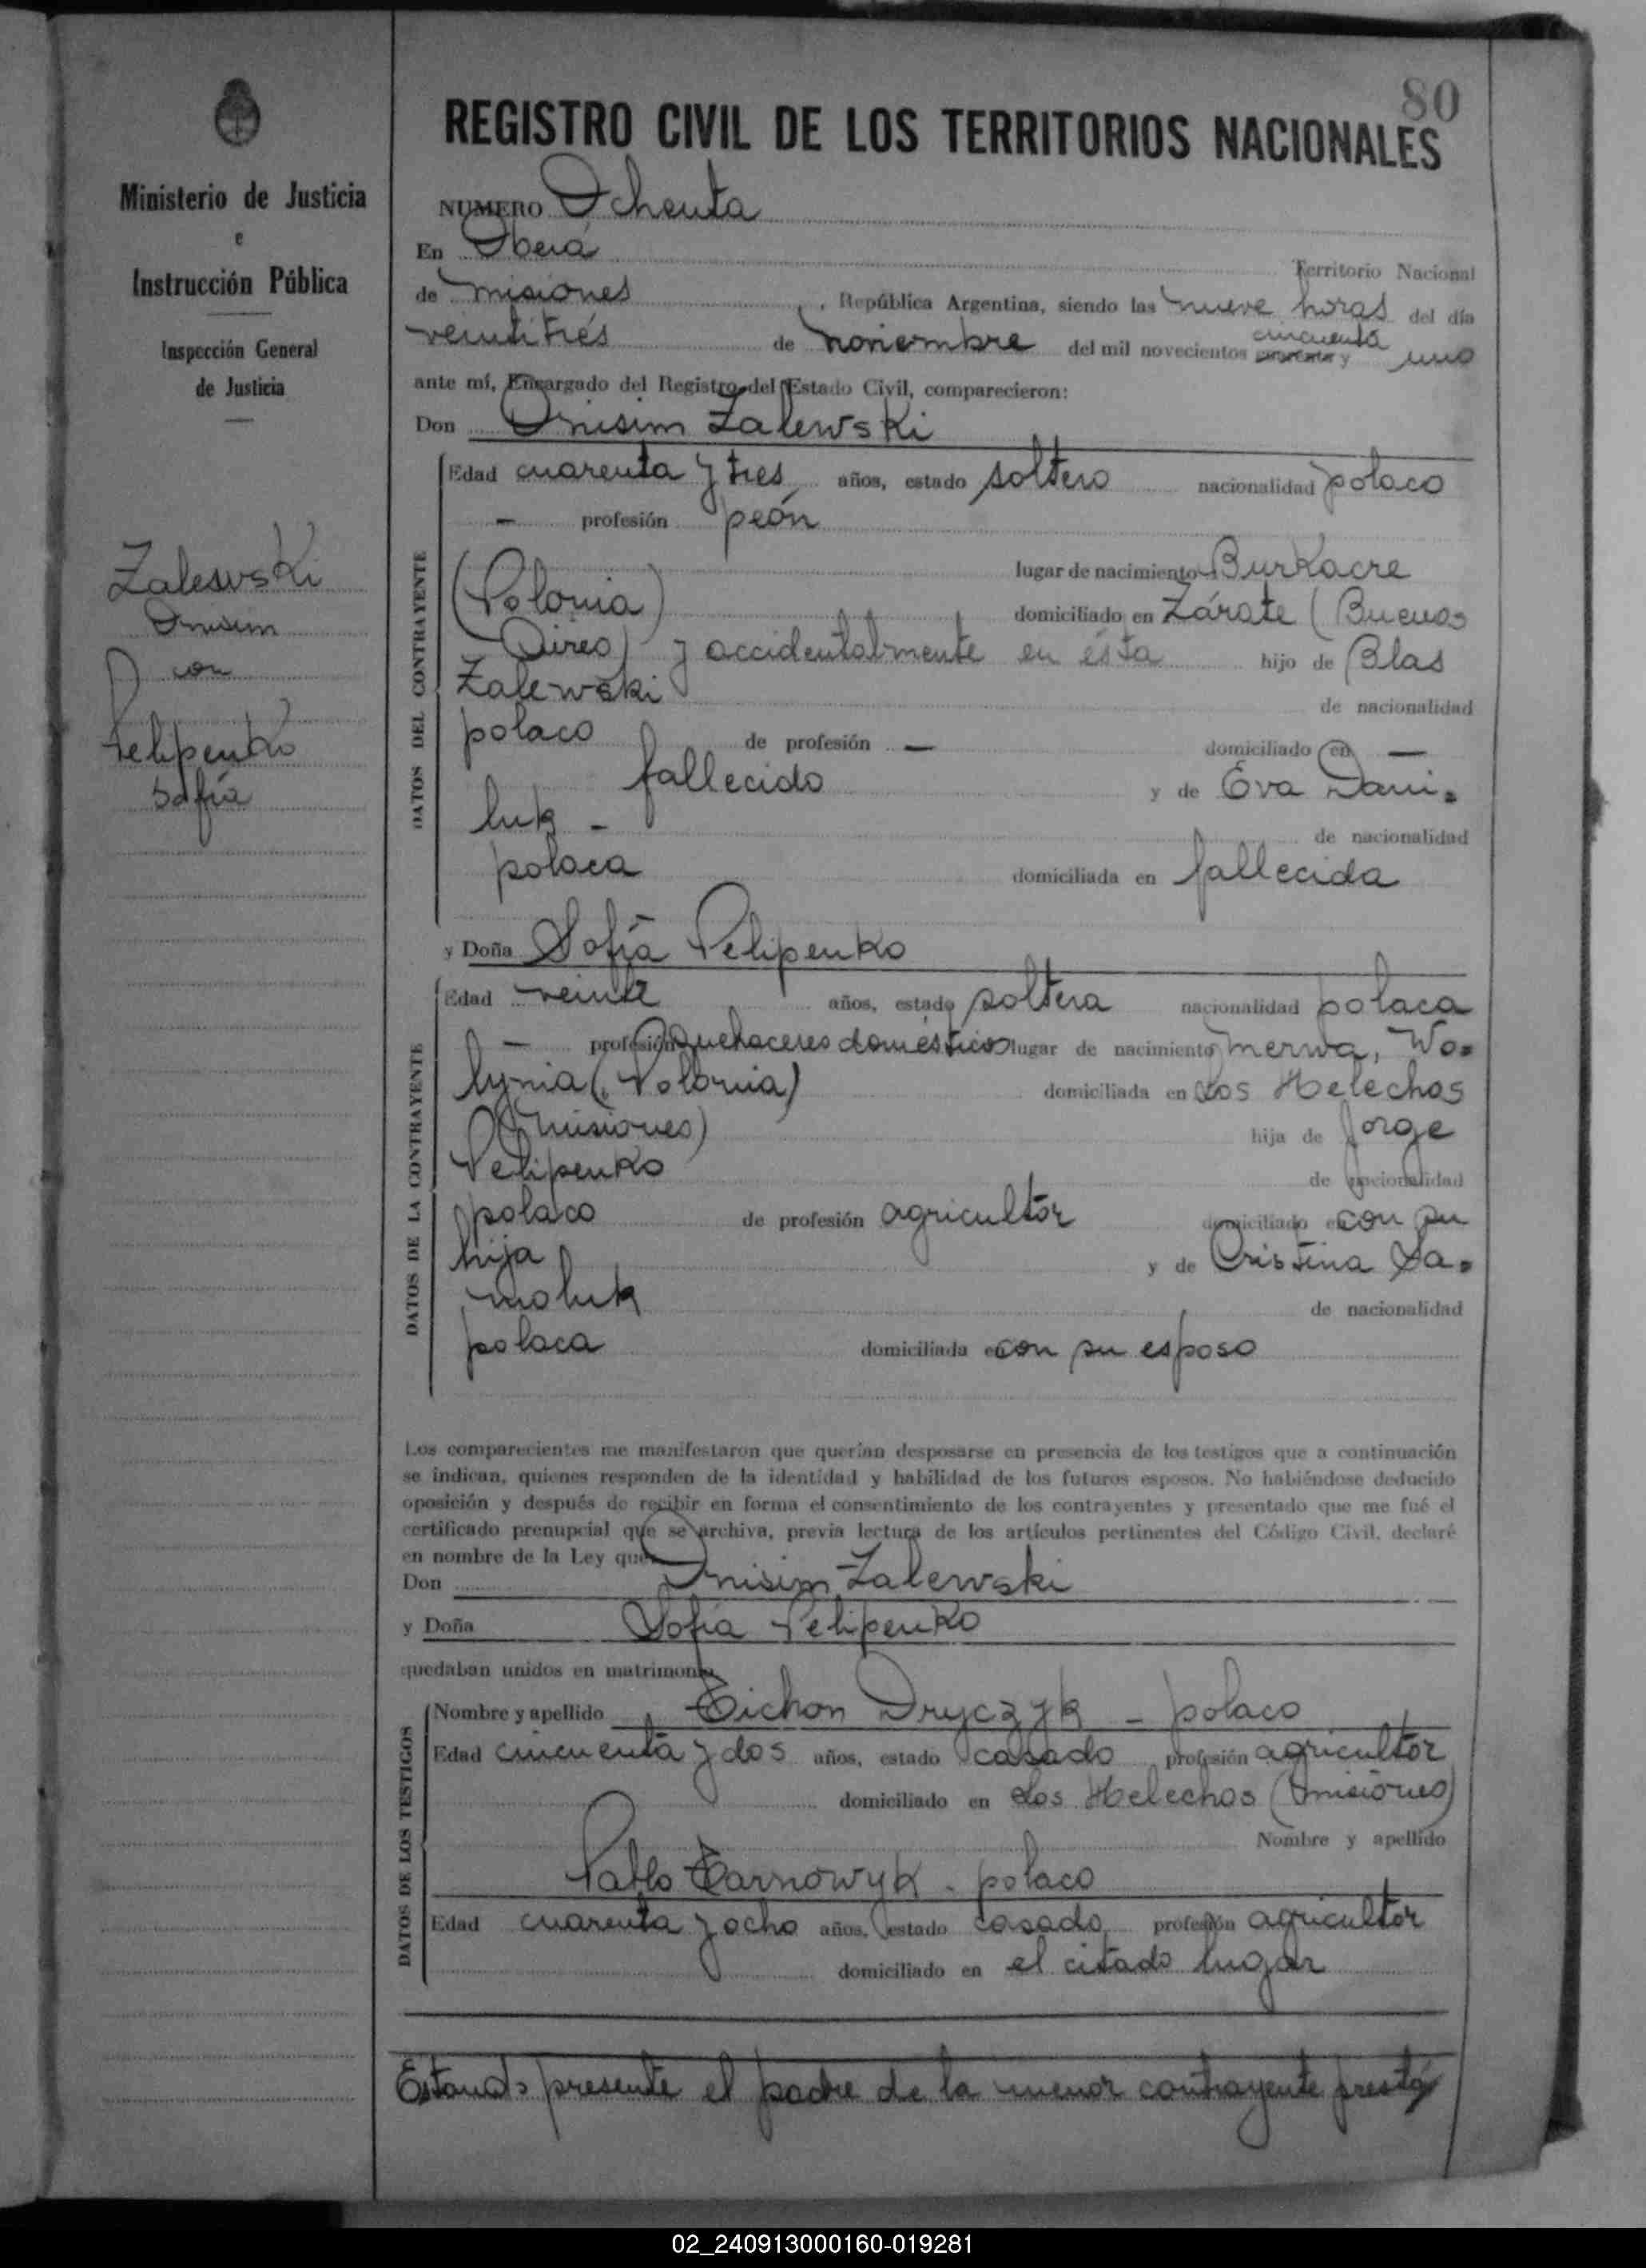 80
REGISTRO CIVIL DE LOS TERRITORIOS NACIONALES
Ministerio de Justicia
e
Instrucción Pública
Inspección General
de Justicia
Zalewski
Onisim
con
Pelipenko
Sofía
NUMERO Ochenta
En Oberá Territorio Nacional
de Misiones, República Argentina, siendo las nueve horas del día
veintitrés de noviembre del mil novecientos cincuenta y uno
ante mí, Encargado del Registro del Estado Civil, comparecieron:
Don Onisim Zalewski
DATOS DEL CONTRAYENTE
Edad cuarenta y tres años, estado soltero nacionalidad polaco
— profesión peón
lugar de nacimiento Burkacre
(Polonia) domiciliado en Zárate (Buenos
Aires) y accidentalmente en ésta hijo de Blas
Zalewski de nacionalidad
polaco de profesión — domiciliado en —
fallecido y de Eva Dani-
luk - de nacionalidad
polaca domiciliada en fallecida
y Doña Sofía Pelipenko
DATOS DE LA CONTRAYENTE
Edad veinte años, estado soltera nacionalidad polaca
— profesión quehaceres domésticos lugar de nacimiento Merwa, Wo=
lynia (Polonia) domiciliada en Los Helechos
(Misiones) hija de Jorge
Pelipenko de nacionalidad
polaco de profesión agricultor domiciliado en con su
hija y de Cristina Sa=
moluk de nacionalidad
polaca domiciliada en con su esposo
Los comparecientes me manifestaron que querían desposarse en presencia de los testigos que a continuación
se indican, quienes responden de la identidad y habilidad de los futuros esposos. No habiéndose deducido
oposición y después de recibir en forma el consentimiento de los contrayentes y presentado que me fué el
certificado prenupcial que se archiva, previa lectura de los artículos pertinentes del Código Civil, declaré
en nombre de la Ley que
Don Onisim Zalewski
y Doña Sofía Pelipenko
quedaban unidos en matrimonio
DATOS DE LOS TESTIGOS
Nombre y apellido Tichon Dryczyk - polaco
Edad cincuenta y dos años, estado casado profesión agricultor
domiciliado en Los Helechos (Misiones)
Nombre y apellido
Pablo Tarnowyk - polaco
Edad cuarenta y ocho años, estado casado profesión agricultor
domiciliado en el citado lugar
Estando presente el padre de la menor contrayente prestó
02_240913000160-019281